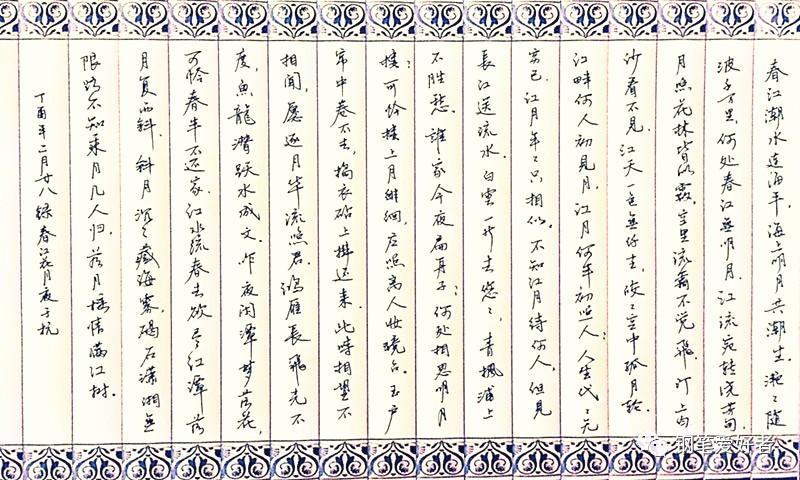 春江潮水连海平，海上明月共潮生。滟〻随
波千万里，何处春江無明月。江流宛转绕芳甸，
月照花林皆似霰。空里流霜不觉飛，汀上白
沙看不见。江天一色無纤尘，皎〻空中孤月轮。
江畔何人初见月，江月何年初照人；人生代〻无
穷已，江月年〻只相似。不知江月待何人，但见
長江送流水。白雲一片去悠〻，青枫浦上
不胜愁。誰家今夜扁舟子；何处相思明月
楼；可怜楼上月徘徊，应照离人妆镜台。玉户
帘中卷不去，捣衣砧上拂还来。此時相望不
相闻，愿逐月华流照君。鸿雁長飛光不
度，魚龍潜跃水成文。昨夜闲潭梦落花，
可怜春半不还家。江水流春去欲尽，江潭落
月复西斜。斜月沉〻藏海霧，碣石潇湘無
限路。不知乘月几人归，落月摇情满江树。
丁酉年二月廿八録春江花月夜于杭
钢笔爱好者